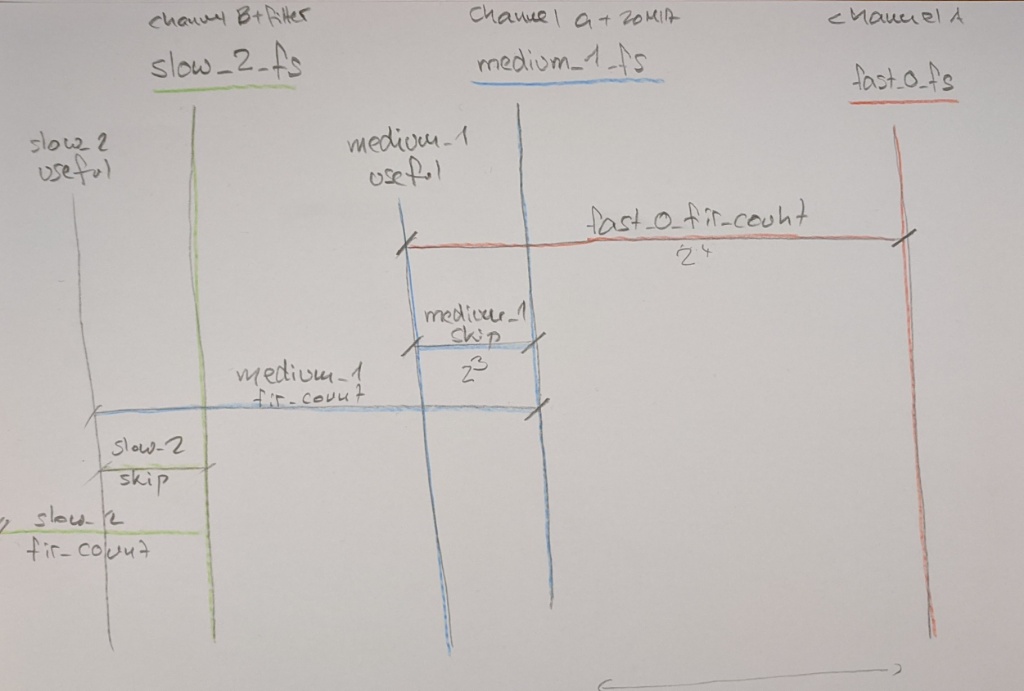 channel B+filter
slow_2_fs
channel a + 20MHz
medium_1_fs
channel A
fast_0_fs
slow_2
useful
medium_1
useful
fast_0_fir_count
2⁴
medium_1
skip
2³
medium_1
fir_count
slow_2
skip
slow_2
fir_count